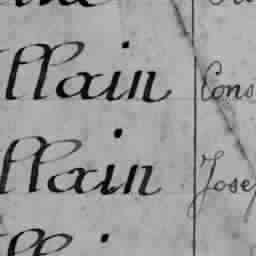 llain Cons
llain Jose